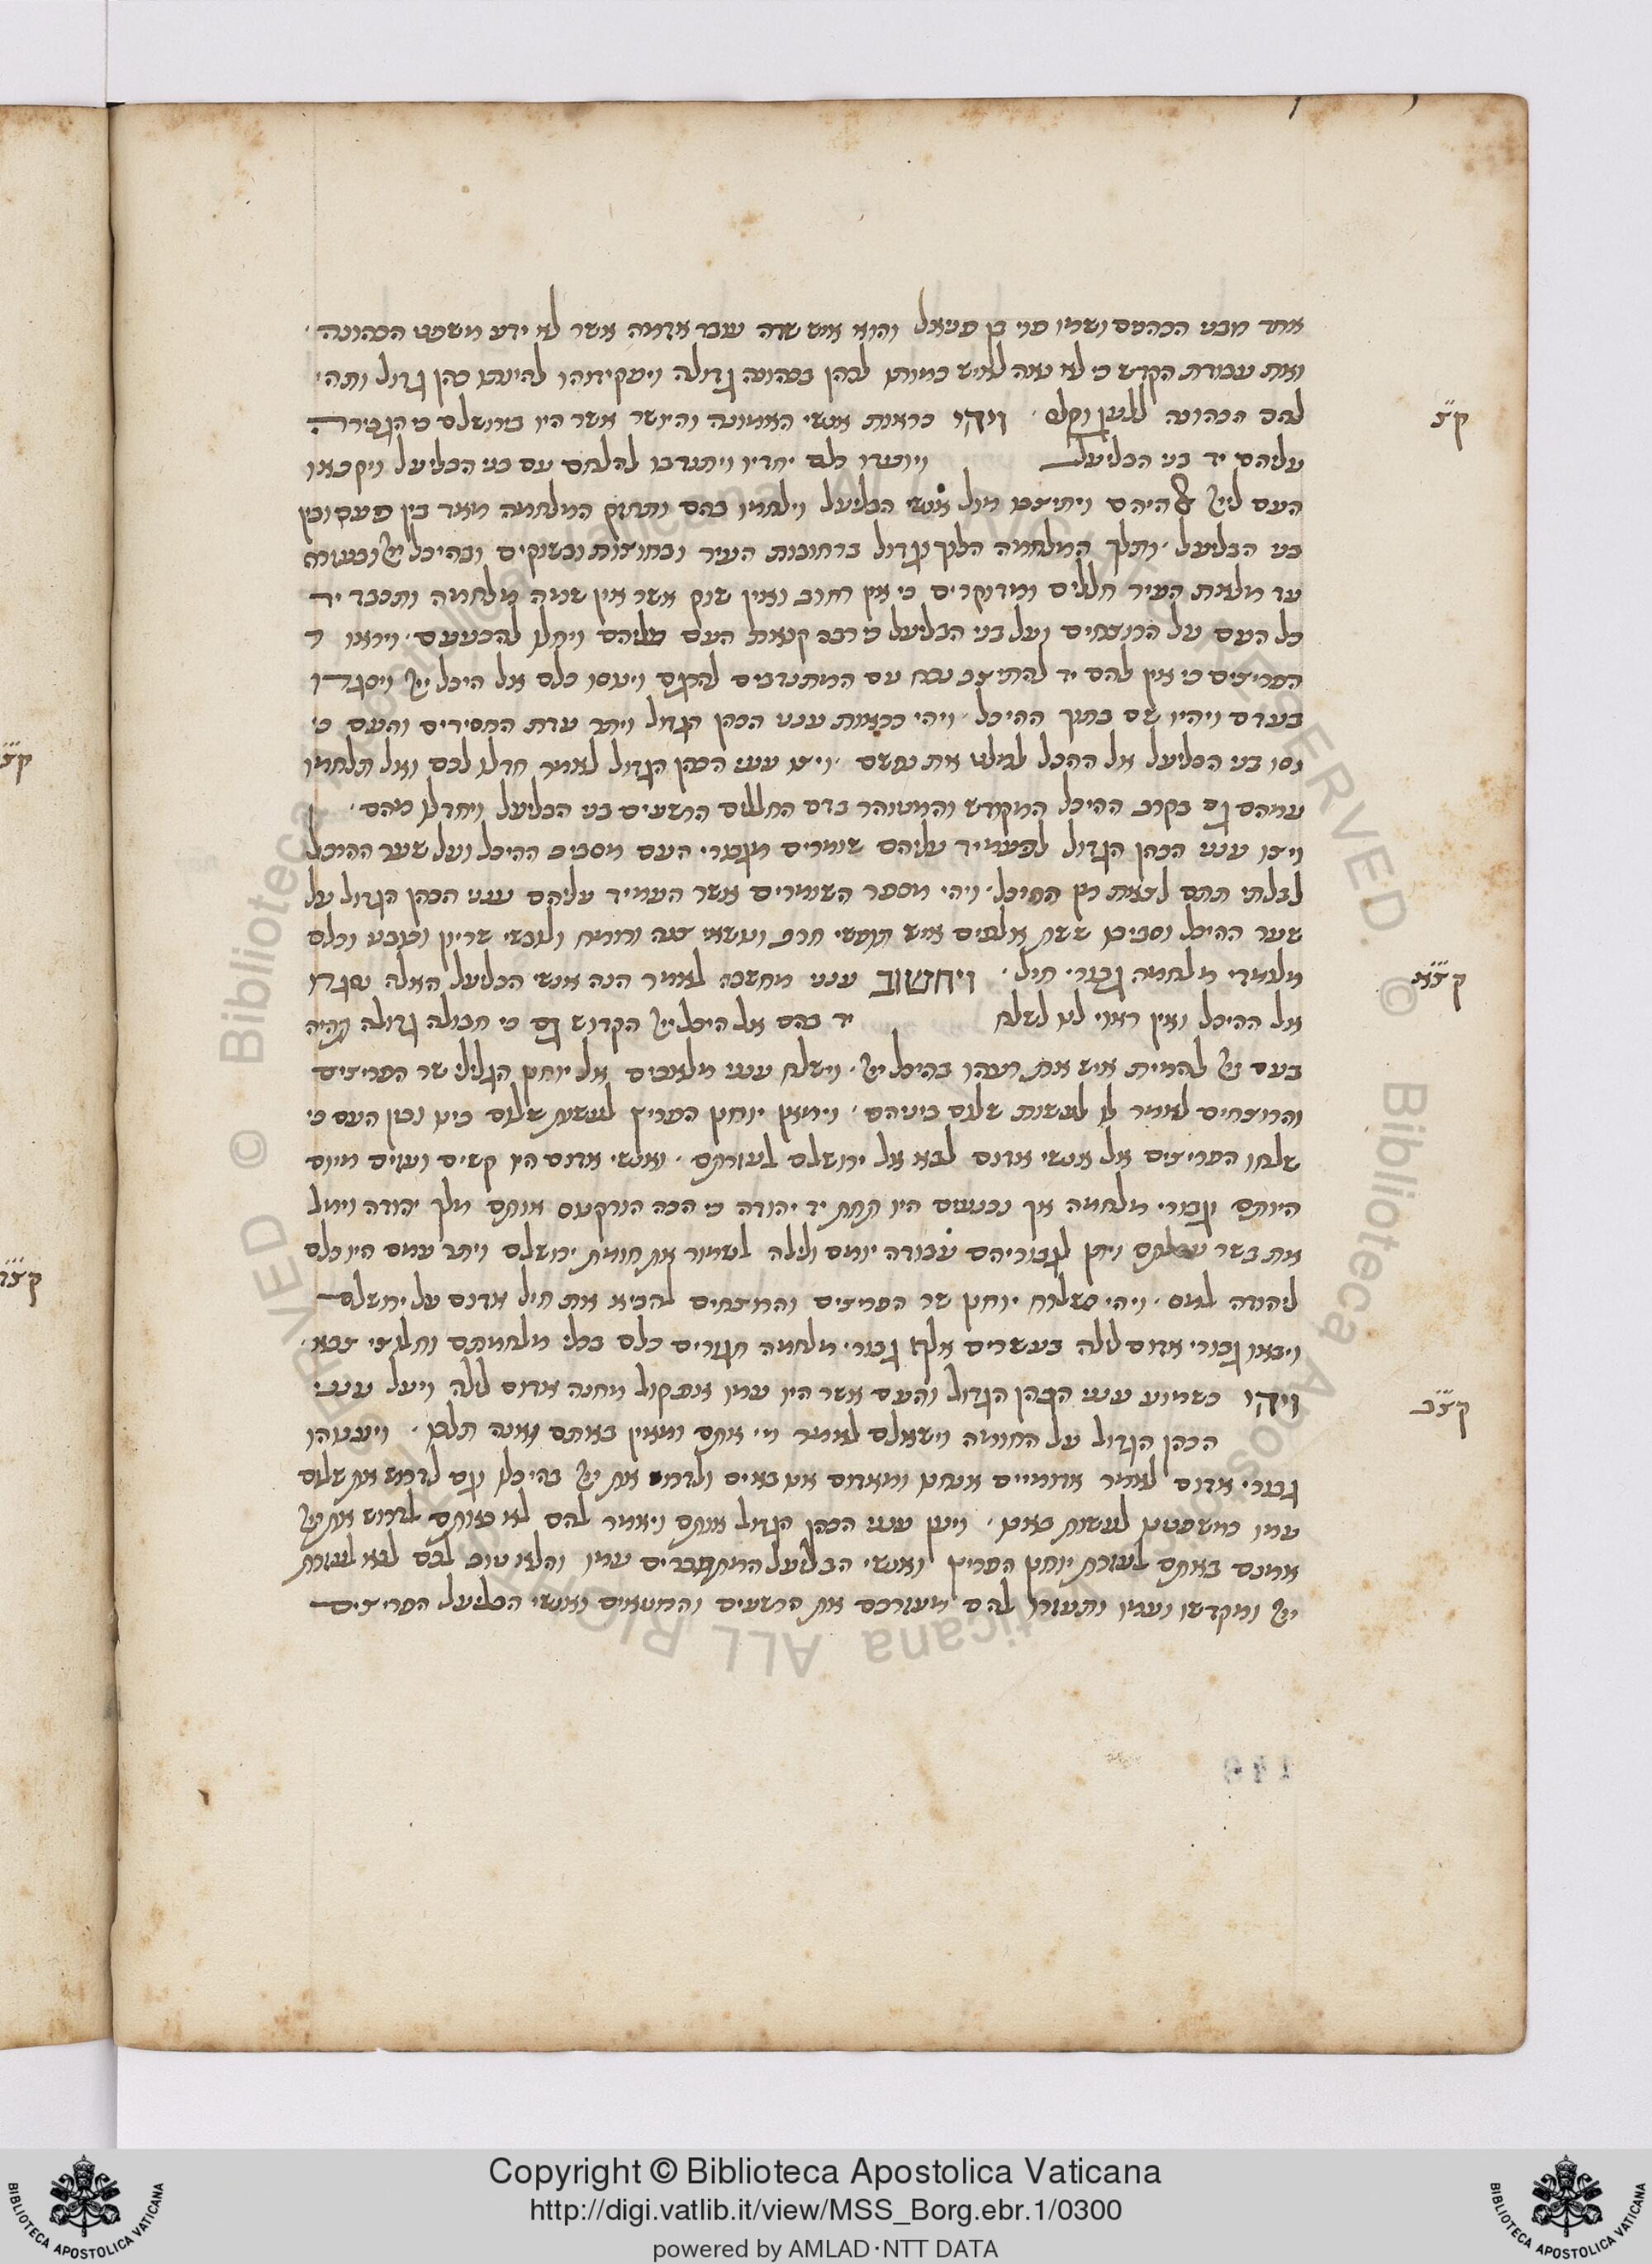 אחד מבני הכהנים ושמו פני בן פניאל והוא איש שדה עובד אדמה אשר לא ידע משפט הכהונה
ואת עבודת הקדש כי לא נאה לאיש כמוהו לכהן בכהונה גדולה ויפקידוהו להיות כהן גדול ותהי
להם הכהונה ללעג וקלס ויהי כראות אנשי האמונה והיושר אשר היו בירושלם כי הגבירה
עליהם יד בני הבליעל ויועדו כלם יחדיו ויתנדבו להלחם עם בני הבליעל ויקבצו
העם ליי׳ אלהיהם ויתיצבו מול אנשי הבליעל וילחמו בהם ותחזק המלחמה מאד בין העם ובין
בני הבליעל ותלך המלחמה הלוך וגדול ברחובות העיר ובחוצות ובשוקים ובהיכל יי׳ ובעזרה
עד מלאת העיר חללים ומדוקרים כי אין רחוב ואין שוק אשר אין שמה מלחמה ותכבד יד
כל העם על הרוצחים ועל בני הבליעל כי רבה קנאת העם עליהם ויחלו להכניעם ויראו
הפריצים כי אין להם יד להתיצב נכח עם המתנדבים להלחם וינוסו כלם אל היכל יי׳ ויסגרו
בעדם ויהיו שם בתוך ההיכל ויהי כראות ענני הכהן הגדול ויתר עדת החסידים והעם כי
נסו בני הבליעל אל ההיכל למלט את נפשם ויצו ענני הכהן הגדול לאמר חדלו לכם ואל תלחמו
עמהם גם בקרב ההיכל המקודש והמטוהר בדם החללים הרשעים בני הבליעל ויחדלו מהם
ויצו ענני הכהן הגדול להעמיד עליהם שומרים מגבורי העם מסביב ההיכל ועל שער ההיכל
לבלתי תתם לצאת מן ההיכל ויהי מספר השומרים אשר העמיד עליהם ענני הכהן הגדול על
שער ההיכל וסביבו ששת אלפים איש תופשי חרב ונושאי צנה ורומח ולובשי שריון וכובע וכלם
מלומדי מלחמה גבורי חיל ויחשוב ענני מחשבה לאמר הנה אנשי הבליעל האלה נסגרו
אל ההיכל ואין ראוי לנו לשלח יד בהם אל היכל יי׳ הקדוש גם כי חבולה גדולה תהיה
בעם יי׳ להמית איש את רעהו בהיכל יי׳ וישלח ענני מלאכים אל יוחנן הגלילי שר הפריצים
והרוצחים לאמר לו לעשות שלום ביניהם וימאן יוחנן הפריץ לעשות שלום בינו ובין העם כי
שלחו הפריצים אל אנשי אדום לבא אל ירושלם לעזרתם ואנשי אדום היו קשים ועזים מיום
היותם וגבורי מלחמה אך נכנעים היו תחת יד יהודה כי הכה הורקנוס אותם מלך יהודה וימל
את בשר ערלתם ויתן לגבוריהם עבודה יומם ולילה לשמור את חומת ירושלם ויתר עמם היו כלם
ליהודה למס ויהי כשלוח יוחנן שר הפריצים והרוצחים להביא את חיל אדום על ירושלם
ויבאו גבורי אדום לילה בעשרים אלף גבורי מלחמה חגורים כלם בכלי מלחמתם וחלוצי צבא
ויהי כשמוע ענני הכהן הגדול והעם אשר היו עמו את קול מחנה אדום לילה ויעל ענני
הכהן הגדול על החומה וישאלם לאמר מי אתם ומאין באתם ואנה תלכו ויענוהו
גבורי אדום לאמר אדומיים אנחנו ומאדום אנו באים ולדרוש את יי׳ בהיכלו וגם לדרוש את שלום
עמו כמשפטנו לעשות באנו ויען ענני הכהן הגדול אותם ויאמר להם לא באתם לדרוש את יי׳
אמנם באתם לעזרת יוחנן הפריץ ואנשי הבליעל המתחברים עמו והלא טוב לכם לבא לעזרת
יי׳ ומקדשו ועמו ותעזרו להם מעזרכם את הרשעים והחטאים ואנשי הבליעל הפריצים
ק״צ
קצ״א
קצ״ב
Copyright © Biblioteca Apostolica Vaticana
http://digi.vatlib.it/view/MSS_Borg.ebr.1/0300
powered by AMLAD·NTT DATA